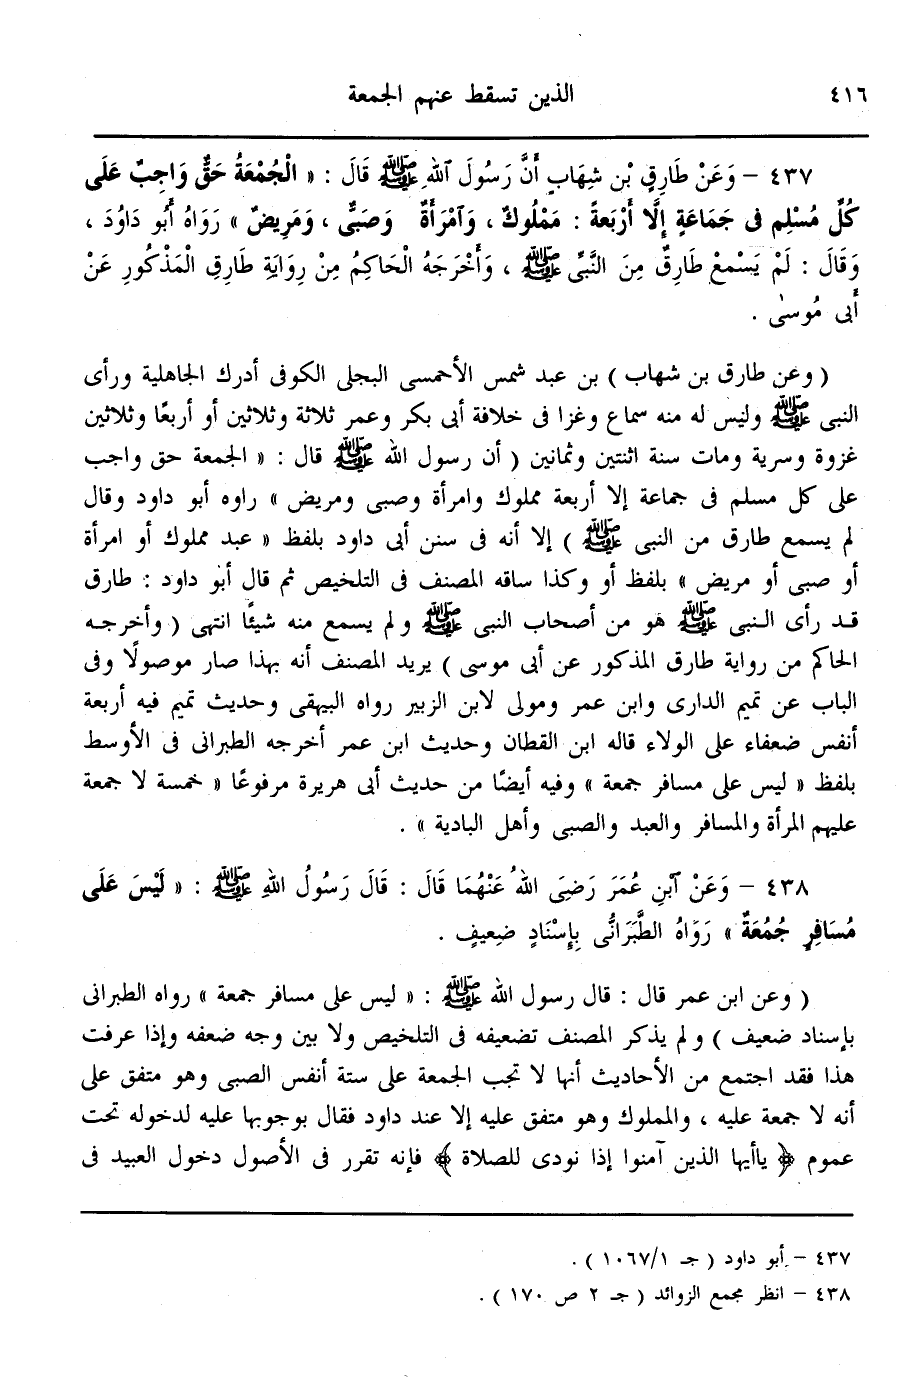 ٤١٦ الذين تسقط عنهم الجمعة
٤٣٧ – وَعَنْ طَارِقٍ بْنِ شِهَابٍ أَنَّ رَسُولَ ٱللهِ ﷺ قَالَ : « الْجُمْعَةُ حَقٌّ وَاجِبٌ عَلَى
كُلِّ مُسْلِمٍ فى جَمَاعَةٍ إِلَّا أَرْبَعةً : مَمْلُوكٌ ، وَٱمْرَأَةٌ وَصَبِىٌّ ، وَمَرِيضٌ » رَوَاهُ أَبُو دَاوُدَ ،
وَقَالَ : لَمْ يَسْمعْ طَارِقٌ مِنَ النَّبِىِّ ﷺ ، وَأَخْرَجَهُ الْحَاكِمُ مِنْ رِوَايَةِ طَارِقٍ الْمَذْكُورِ عَنْ
أَبى مُوسىٰ .
( وعن طارق بن شهاب ) بن عبد شمس الأحمسى البجلى الكوفى أدرك الجاهلية ورأى
النبى ﷺ وليس له منه سماع وغزا فى خلافة أبى بكر وعمر ثلاثة وثلاثين أو أربعًا وثلاثين
غزوة وسرية ومات سنة اثنتين وثمانين ( أن رسول الله ﷺ قال : « الجمعة حق واجب
على كل مسلم فى جماعة إلا أربعة مملوك وامرأة وصبى ومريض » راوه أبو داود وقال
لم يسمع طارق من النبى ﷺ ) إلا أنه فى سنن أبى داود بلفظ « عبد مملوك أو امرأة
أو صبى أو مريض » بلفظ أو وكذا ساقه المصنف فى التلخيص ثم قال أبو داود : طارق
قد رأى النبى ﷺ هو من أصحاب النبى ﷺ ولم يسمع منه شيئًا انتهى ( وأخرجه
الحاكم من رواية طارق المذكور عن أبى موسى ) يريد المصنف أنه بهذا صار موصولًا وفى
الباب عن تميم الدارى وابن عمر ومولى لابن الزبير رواه البيهقى وحديث تميم فيه أربعة
أنفس ضعفاء على الولاء قاله ابن القطان وحديث ابن عمر أخرجه الطبرانى فى الأوسط
بلفظ « ليس على مسافر جمعة » وفيه أيضًا من حديث أبى هريرة مرفوعًا « خمسة لا جمعة
عليهم المرأة والمسافر والعبد والصبى وأهل البادية » .
٤٣٨ – وَعَنْ ٱبْنِ عُمَرَ رَضِىَ اللهُ عَنْهُمَا قَالَ : قَالَ رَسُولُ اللهِ ﷺ : « لَيْسَ عَلَى
مُسَافِرٍ جُمُعَةٌ » رَوَاهُ الطَّبَرَانُى بِإِسْنَادٍ ضَعِيفٍ .
( وعن ابن عمر قال : قال رسول الله ﷺ : « ليس على مسافر جمعة » رواه الطبرانى
بإسناد ضعيف ) ولم يذكر المصنف تضعيفه فى التلخيص ولا بين وجه ضعفه وإذا عرفت
هذا فقد اجتمع من الأحاديث أنها لا تجب الجمعة على ستة أنفس الصبى وهو متفق على
أنه لا جمعة عليه ، والمملوك وهو متفق عليه إلا عند داود فقال بوجوبها عليه لدخوله تحت
عموم ﴿ ياأيها الذين آمنوا إذا نودى للصلاة ﴾ فإنه تقرر فى الأصول دخول العبيد فى
٤٣٧ – أبو داود ( جـ ١/١٠٦٧ ) .
٤٣٨ – انظر مجمع الزوائد ( جـ ٢ ص ١٧٠ ) .